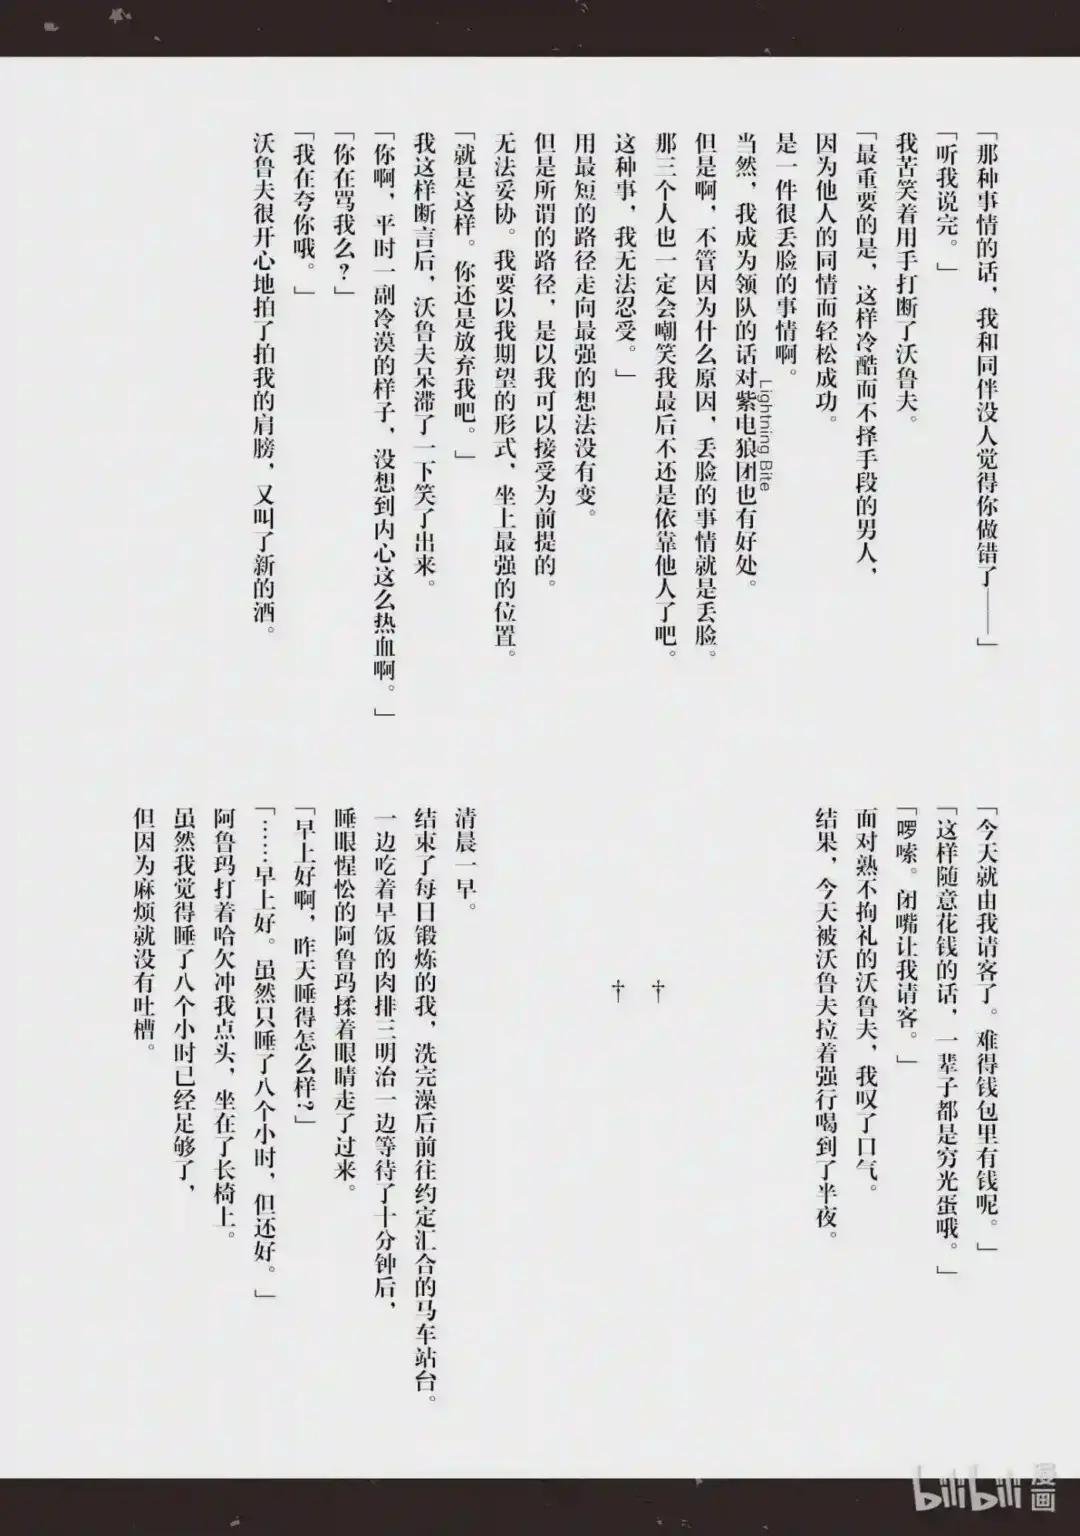 「那种事情的话，我和同伴没人觉得你做错了——」
「听我说完。」
我苦笑着用手打断了沃鲁夫。
「最重要的是，这样冷酷而不择手段的男人，
因为他人的同情而轻松成功。
是一件很丢脸的事情啊。
当然，我成为领队的话对紫电狼团也有好处。
Lightning Bite
但是啊，不管因为什么原因，丢脸的事情就是丢脸。
那三个人也一定会嘲笑我最后不还是依靠他人了吧。
这种事，我无法忍受。」
用最短的路径走向最强的想法没有变。
但是所谓的路径，是以我可以接受为前提的。
无法妥协。我要以我期望的形式，坐上最强的位置。
「就是这样。你还是放弃我吧。」
我这样断言后，沃鲁夫呆滞了一下笑了出来。
「你啊，平时一副冷漠的样子，没想到内心这么热血啊。」
「你在骂我么？」
「我在夸你哦。」
沃鲁夫很开心地拍了拍我的肩膀，又叫了新的酒。
「今天就由我请客了。难得钱包里有钱呢。」
「这样随意花钱的话，一辈子都是穷光蛋哦。」
「啰嗦。闭嘴让我请客。」
面对熟不拘礼的沃鲁夫，我叹了口气。
结果，今天被沃鲁夫拉着强行喝到了半夜。
†
†
清晨一早。
结束了每日锻炼的我，洗完澡后前往约定汇合的马车站台。
一边吃着早饭的肉排三明治一边等待了十分钟后，
睡眼惺忪的阿鲁玛揉着眼睛走了过来。
「早上好啊，昨天睡得怎么样？」
「……早上好。虽然只睡了八个小时，但还好。」
阿鲁玛打着哈欠冲我点头，坐在了长椅上。
虽然我觉得睡了八个小时已经足够了，
但因为麻烦就没有吐槽。
bilibili 漫画